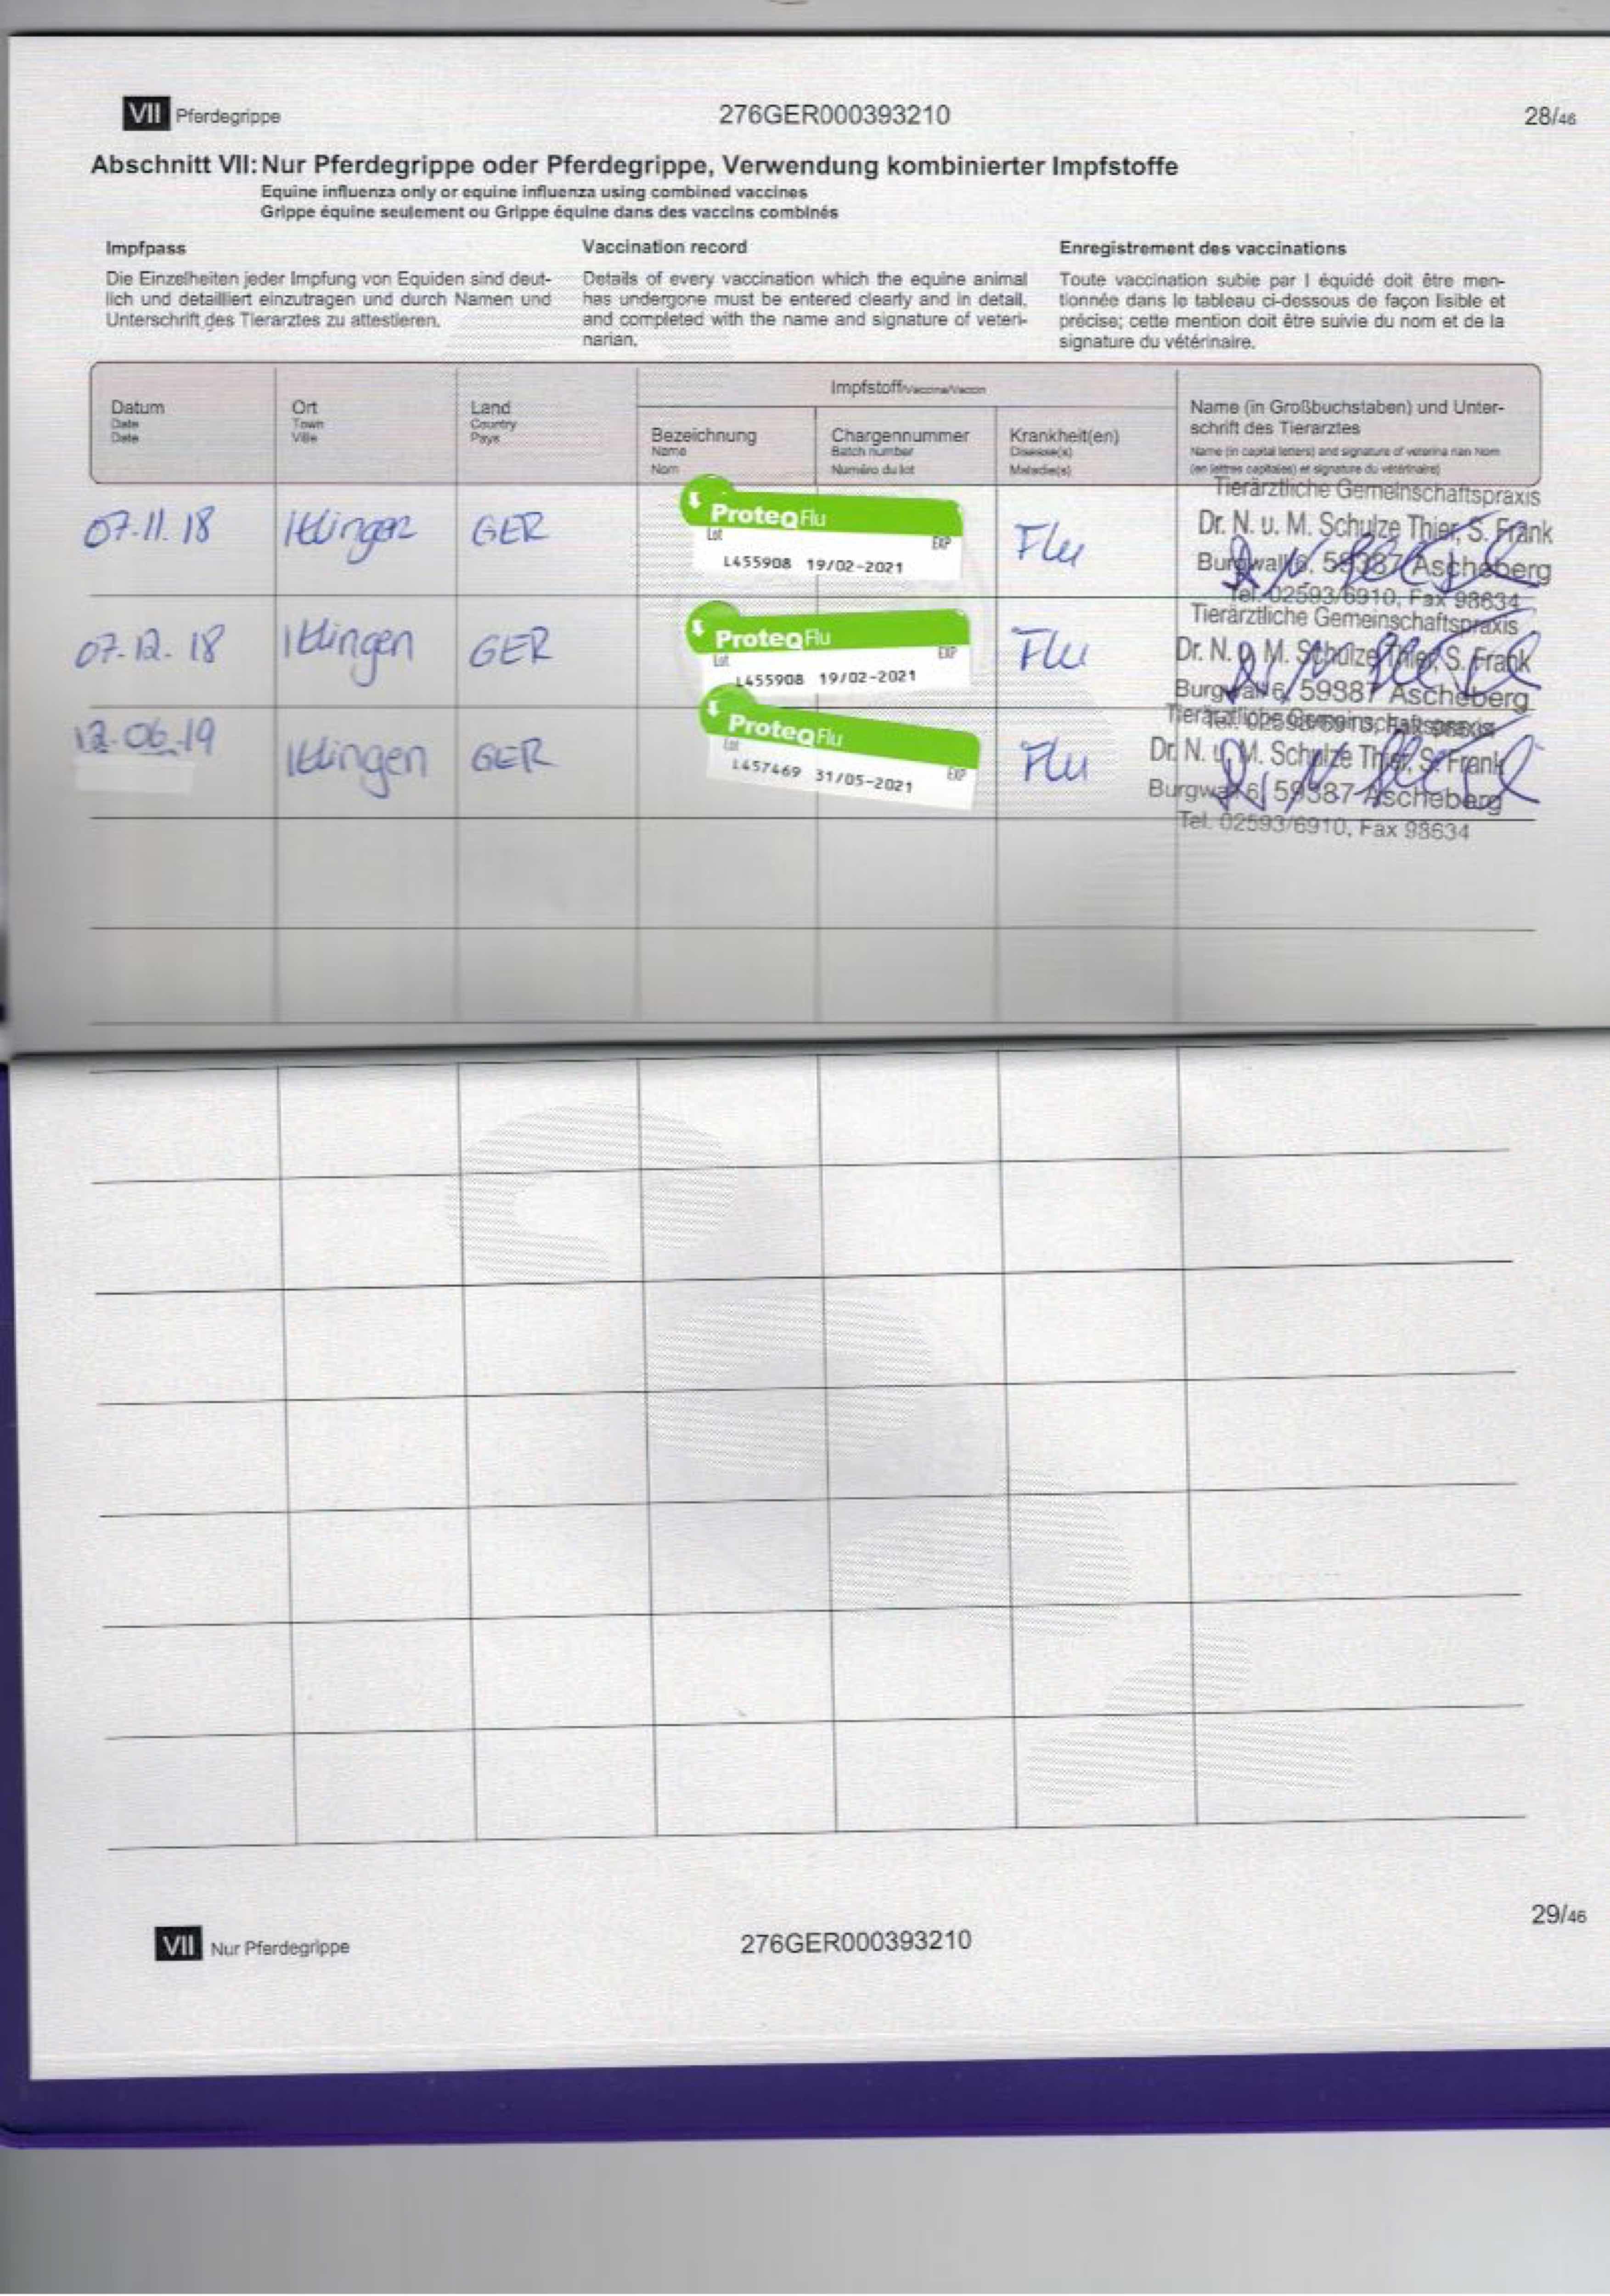 VII Pferdegrippe 276GER000393210 28/46
Abschnitt VII: Nur Pferdegrippe oder Pferdegrippe, Verwendung kombinierter Impfstoffe
Equine influenza only or equine influenza using combined vaccines
Grippe équine seulement ou Grippe équine dans des vaccins combinés
Impfpass
Die Einzelheiten jeder Impfung von Equiden sind deut-
lich und detailliert einzutragen und durch Namen und
Unterschrift des Tierarztes zu attestieren.
Vaccination record
Details of every vaccination which the equine animal
has undergone must be entered clearly and in detail,
and completed with the name and signature of veteri-
narian.
Enregistrement des vaccinations
Toute vaccination subie par l équidé doit être men-
tionnée dans le tableau ci-dessous de façon lisible et
précise; cette mention doit être suivie du nom et de la
signature du vétérinaire.
Datum
Date
Date
Ort
Town
Ville
Land
Country
Pays
Impfstoff/Vaccine/Vaccin
Bezeichnung
Name
Nom
Chargennummer
Batch number
Numéro du lot
Krankheit(en)
Disease(s)
Maladie(s)
Name (in Großbuchstaben) und Unter-
schrift des Tierarztes
Name (in capital letters) and signature of veterina rian Nom
(en lettres capitales) et signature du vétérinaire)
07.11.18 Itlingen GER
ProteqFlu
Lot EXP
L455908 19/02-2021
Flu
Tierärztliche Gemeinschaftspraxis
Dr. N. u. M. Schulze Thier, S. Frank
Burgwall 6, 59387 Ascheberg
Tel. 02593/6910, Fax 98634
07.12.18 Itlingen GER
ProteqFlu
Lot EXP
L455908 19/02-2021
Flu
Tierärztliche Gemeinschaftspraxis
Dr. N. u. M. Schulze Thier, S. Frank
Burgwall 6, 59387 Ascheberg
12.06.19 Itlingen GER
ProteqFlu
Lot EXP
L457469 31/05-2021
Flu
Tierärztliche Gemeinschaftspraxis
Dr. N. u. M. Schulze Thier, S. Frank
Burgwall 6, 59387 Ascheberg
Tel. 02593/6910, Fax 98634
29/46
VII Nur Pferdegrippe 276GER000393210